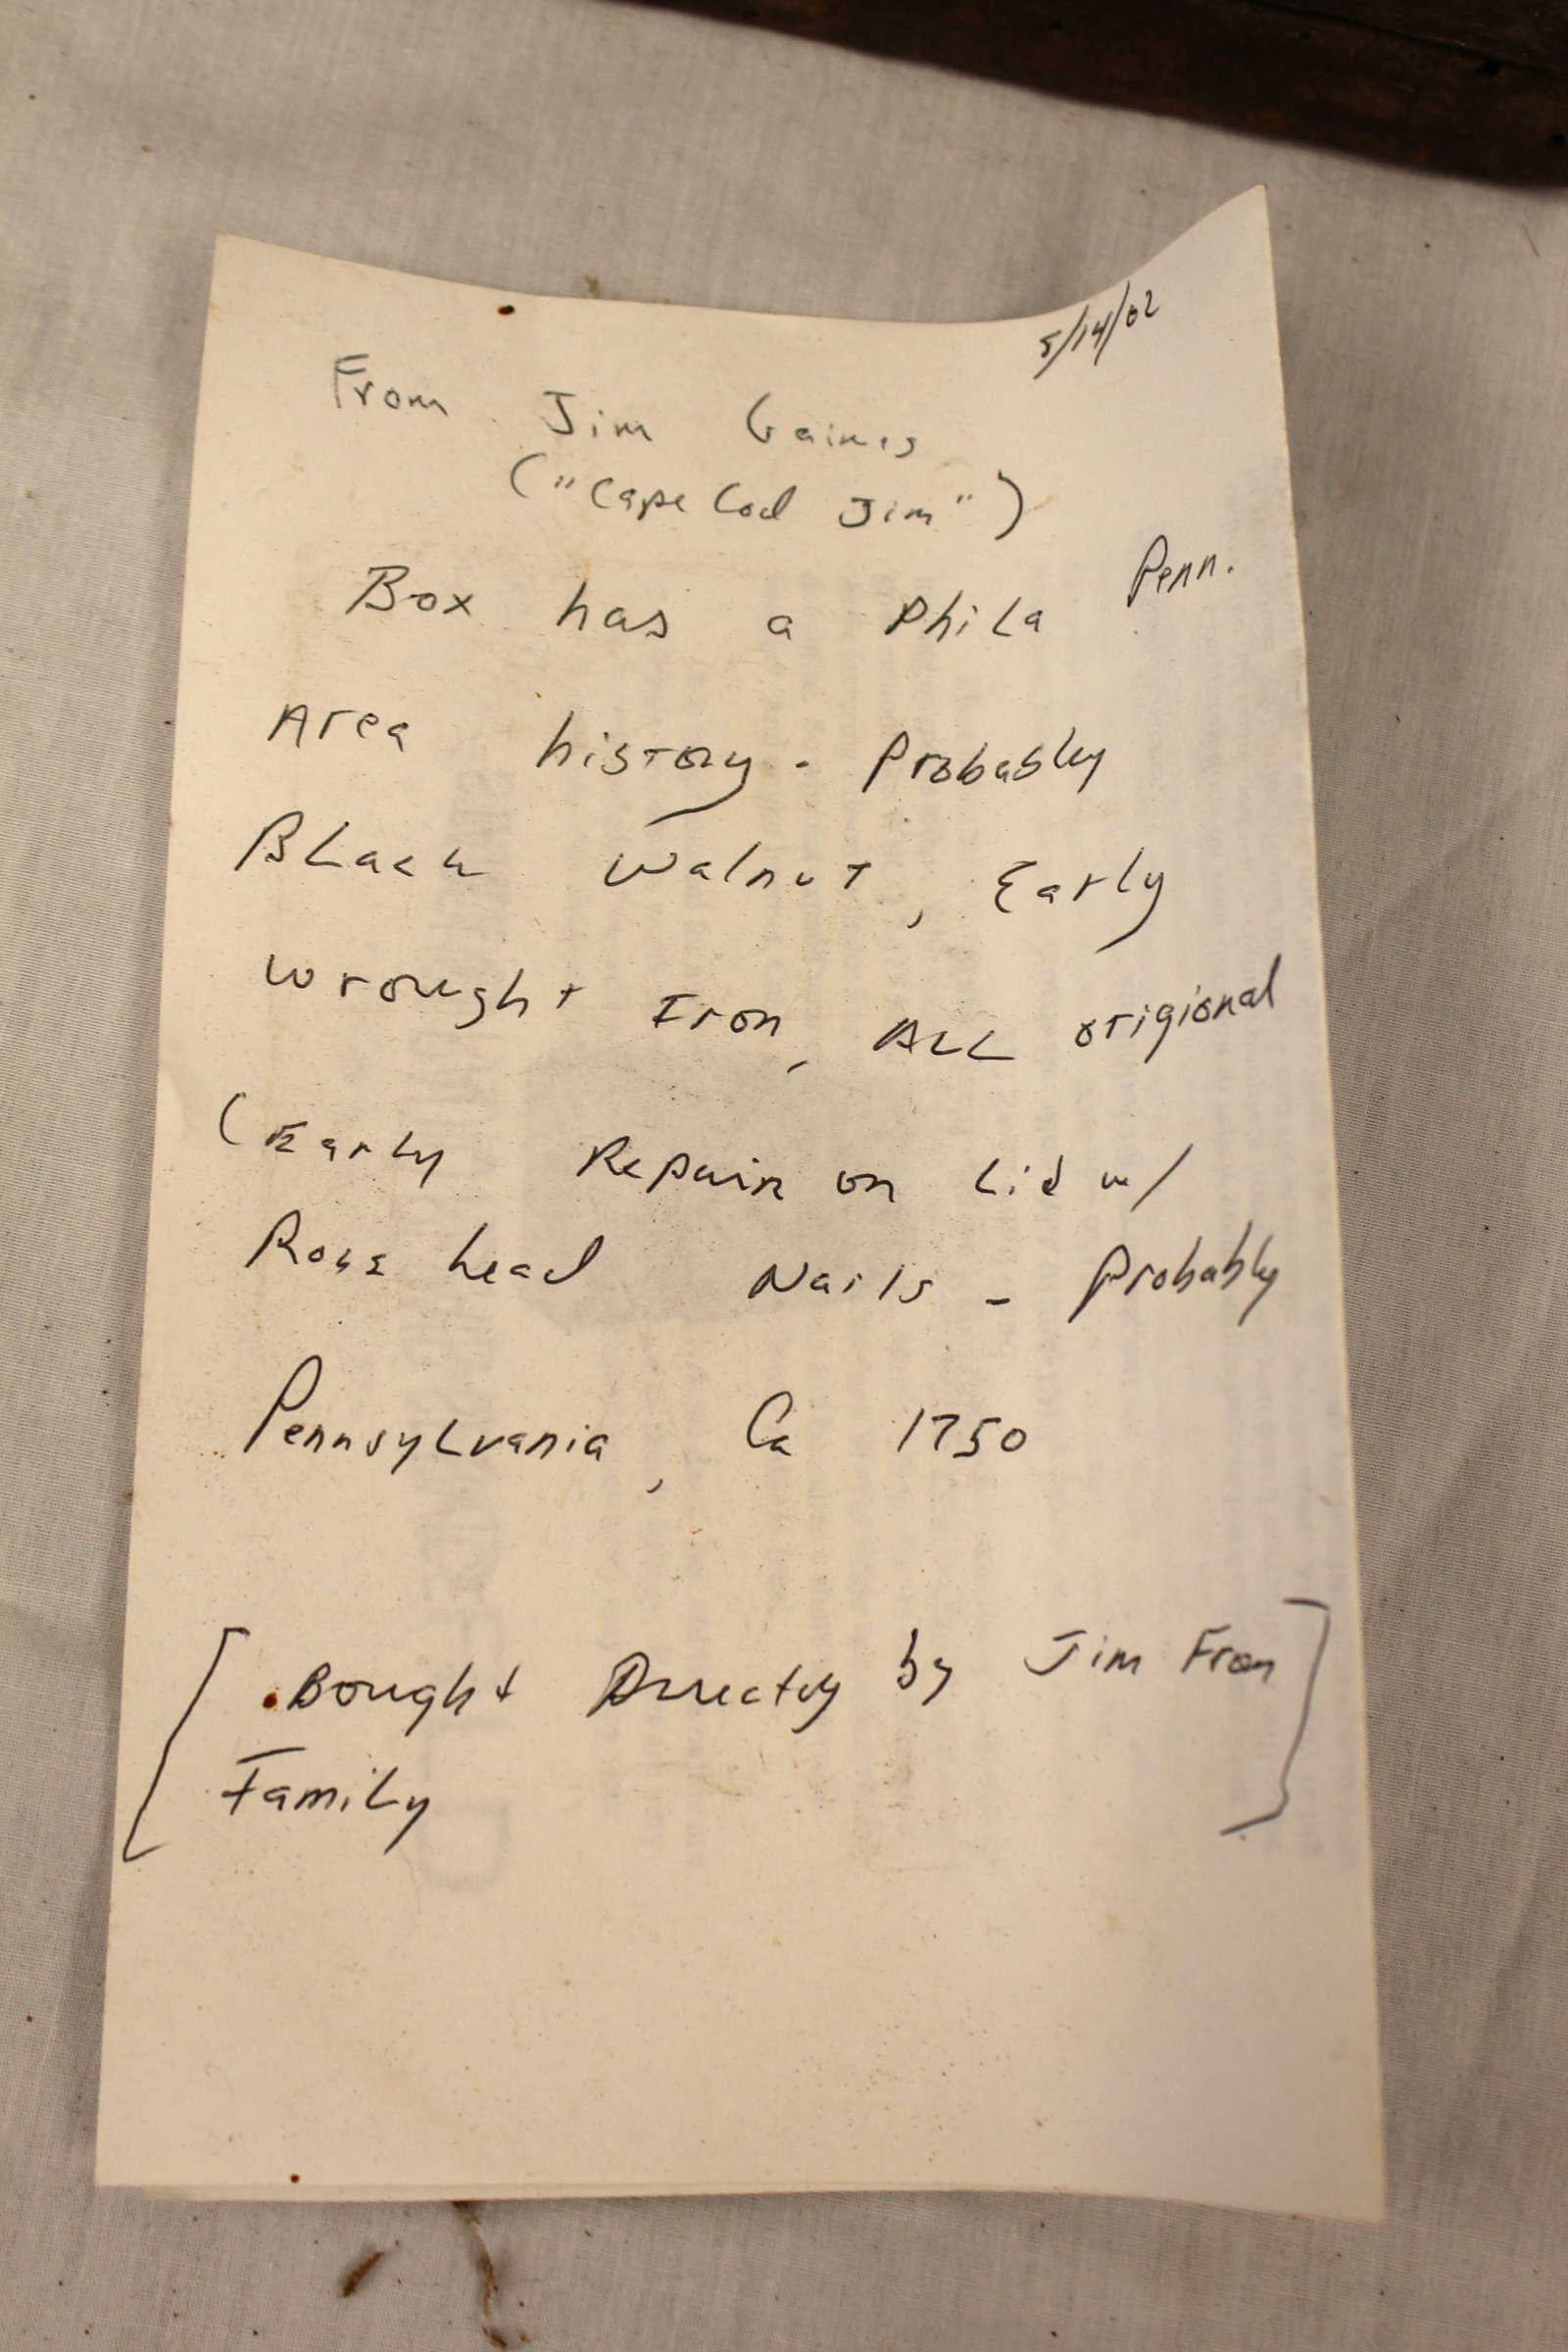 5/14/02
From Jim Gaines
("Cape Cod Jim")
Box has a Phila Penn.
Area history - Probably
Black Walnut, Early
wrought Iron, ALL origional
(Early Repair on Lid w/
Rose head Nails - Probably
Pennsylvania, Ca 1750
[Bought Directly by Jim From
Family]